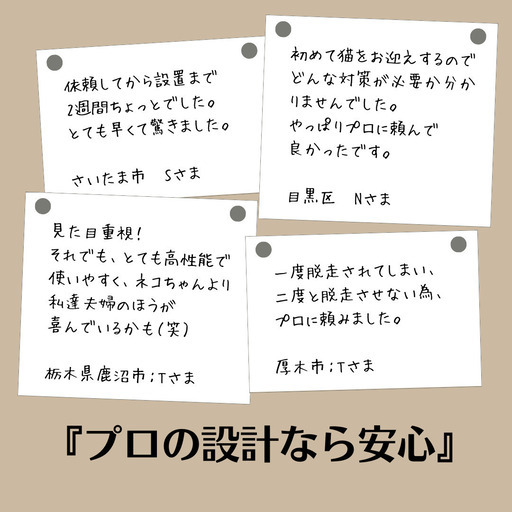 依頼してから設置まで
2週間ちょっとでした。
とても早くて驚きました。
さいたま市　Sさま
初めて猫をお迎えするので
どんな対策が必要か分か
りませんでした。
やっぱりプロに頼んで
良かったです。
目黒区　Nさま
見た目重視!
それでも、とても高性能で
使いやすく、ネコちゃんより
私達夫婦のほうが
喜んでいるかも(笑)
栃木県鹿沼市;Tさま
一度脱走されてしまい、
二度と脱走させない為、
プロに頼みました。
厚木市;Tさま
『プロの設計なら安心』